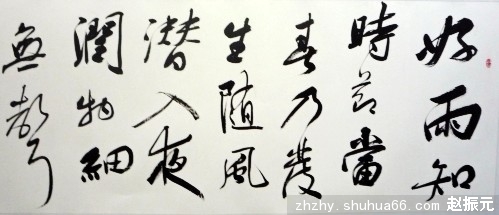 好雨知
時節當
春乃發
生随風
潜入夜
潤物細
無聲
zhzhy.shuhua66.com 赵振元